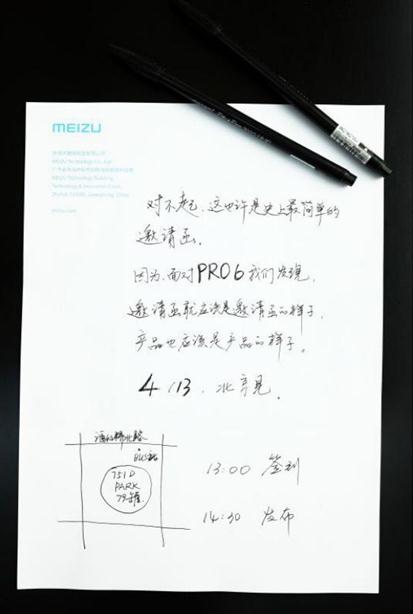 MEIZU
MEIZU Technology Co., Ltd.
MEIZU Technology Building,
Technology & Innovation Coast,
meizu.com
对不起，这也许是史上最简单的
邀请函。
因为，面对PRO 6 我们发现，
邀请函就应该是邀请函的样子，
产品也应该是产品的样子。
4/13，北京见。
酒仙桥北路
751D
PARK
79罐
13:00 签到
14:30 发布